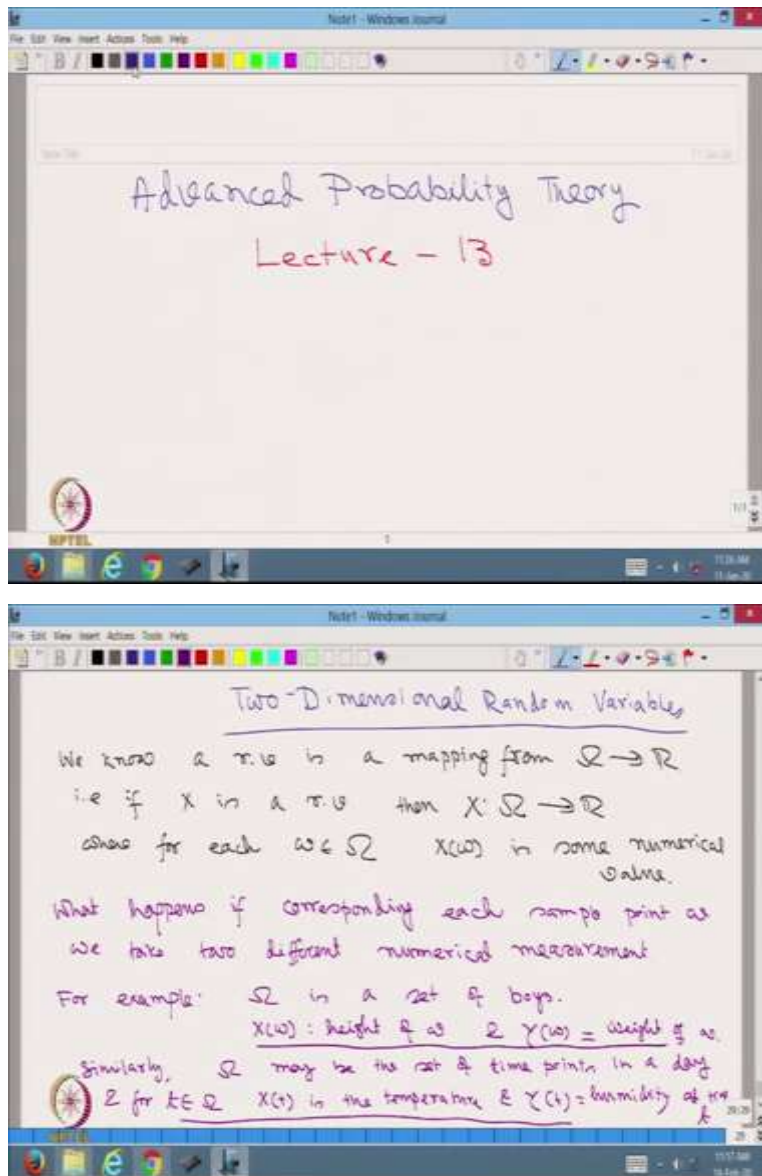 Note1 - Windows Journal
File Edit View Insert Actions Tools Help
Advanced Probability Theory
Lecture - 13
NPTEL
1/1
1
11:26 AM
Note1 - Windows Journal
File Edit View Insert Actions Tools Help
Two-Dimensional Random Variables
We know a r.v is a mapping from Ω → ℝ
i.e if X is a r.v then X: Ω → ℝ
where for each ω ∈ Ω X(ω) is some numerical
value.
What happens if corresponding each sample point ω
we take two different numerical measurement
For example: Ω is a set of boys.
X(ω) : height of ω & Y(ω) = weight of ω.
Similarly, Ω may be the set of time points in a day
& for t ∈ Ω X(t) is the temperature & Y(t) = humidity at
t